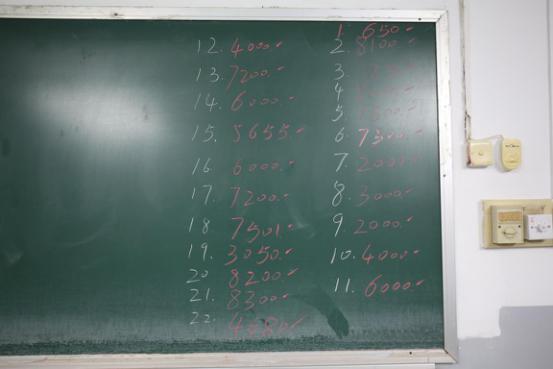 1. 650.-
2. 8100.-
3.
4.
5.
6. 7300.-
7. 2000.-
8. 3000.-
9. 2000.-
10. 4000.-
11. 6000.-
12. 4000.-
13. 7200.-
14. 6000.-
15. 5655.-
16. 6000.-
17. 7200.-
18 7501.-
19. 3050.-
20 8200.-
21. 8300.-
22.